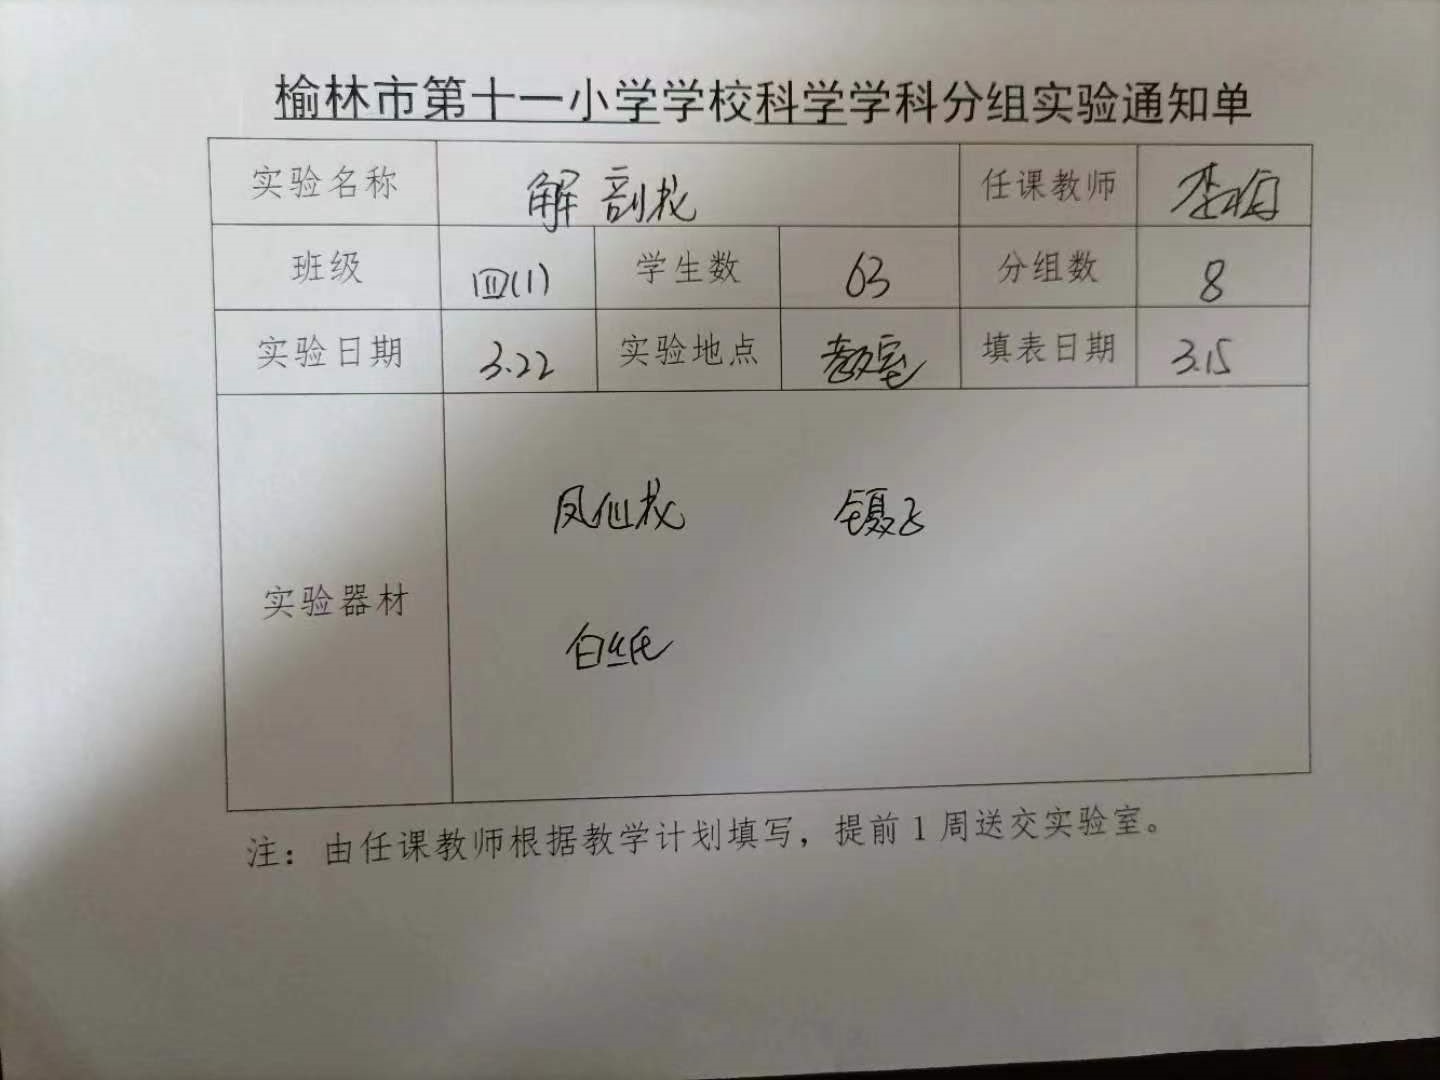 榆林市第十一小学学校科学学科分组实验通知单
实验名称 解剖花 任课教师 李梅
班级 四(1) 学生数 63 分组数 8
实验日期 3.22 实验地点 教室 填表日期 3.15
凤仙花 镊子
实验器材
白纸
注：由任课教师根据教学计划填写，提前1周送交实验室。